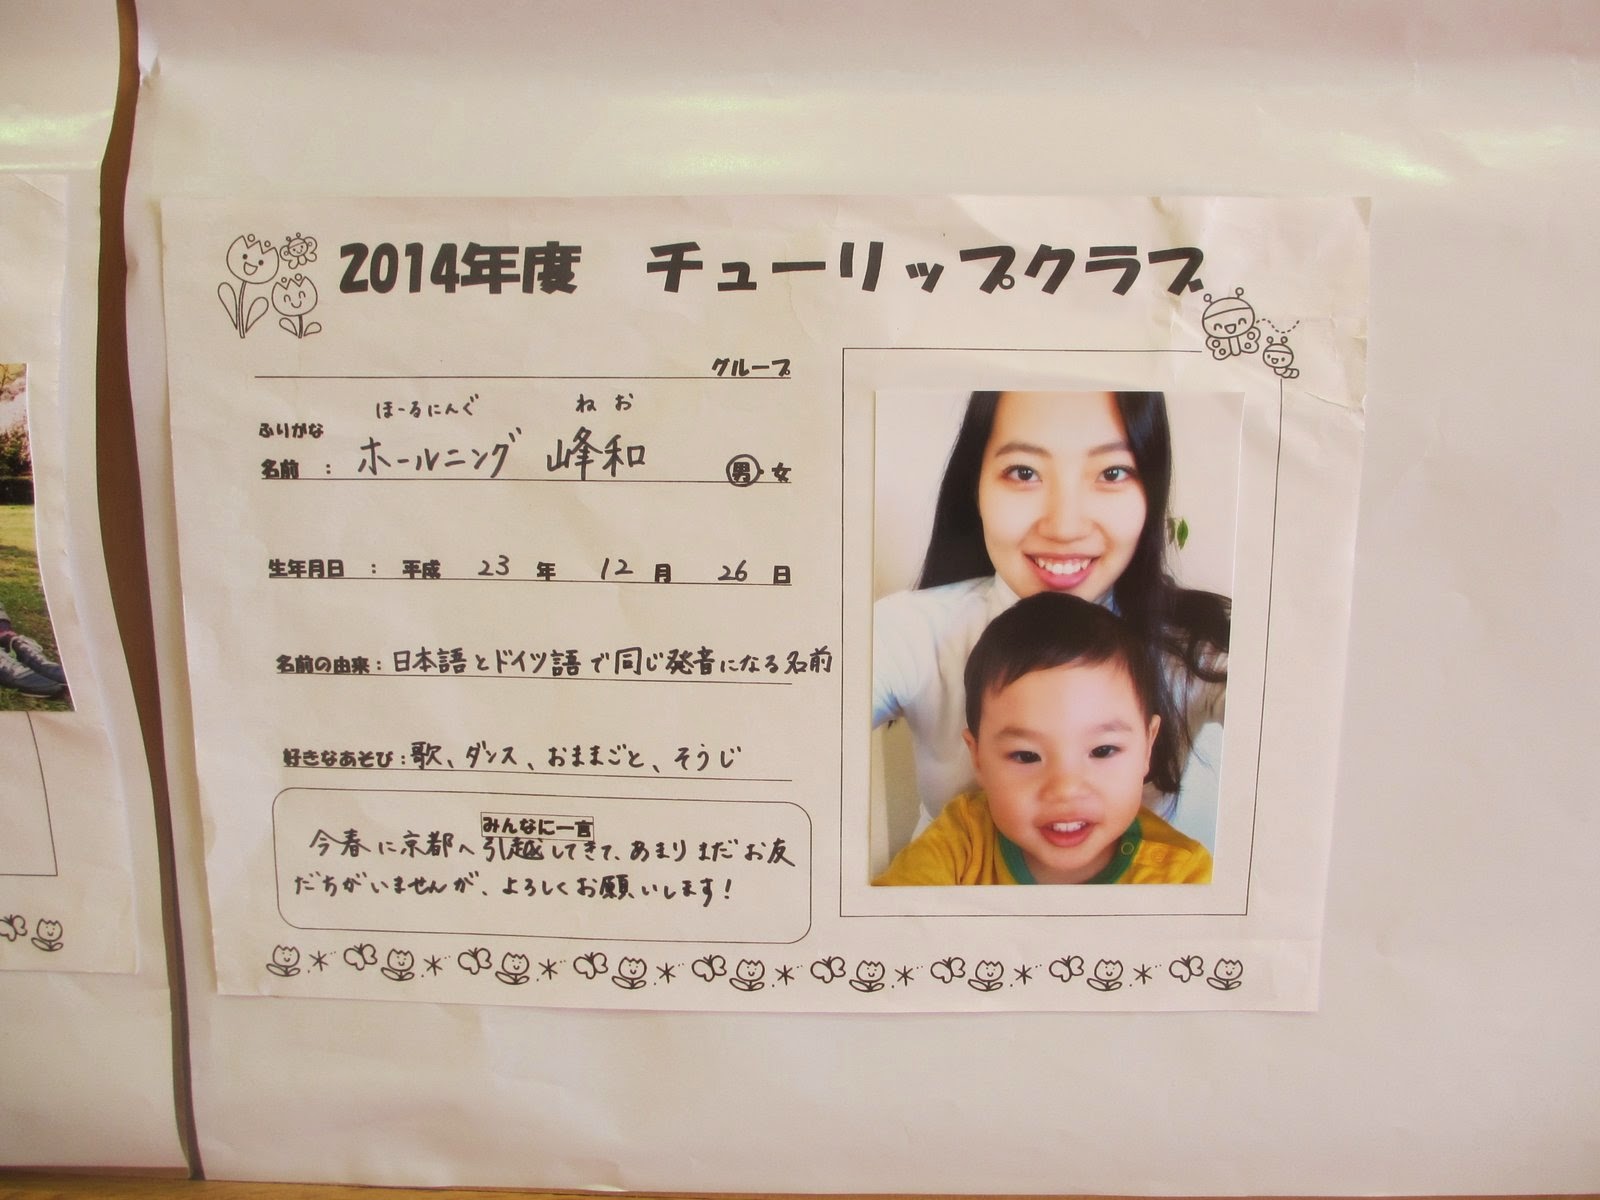 2014年度 チューリップクラブ
グループ
ふりがな ほーるにんぐ ねお
名前 : ホールニング 峰和 男・女
生年月日 : 平成 23 年 12 月 26 日
名前の由来 : 日本語とドイツ語で同じ発音になる名前
好きなあそび : 歌、ダンス、おままごと、そうじ
みんなに一言
今春に京都へ引越してきて、あまりまだお友
だちがいませんが、よろしくお願いします!